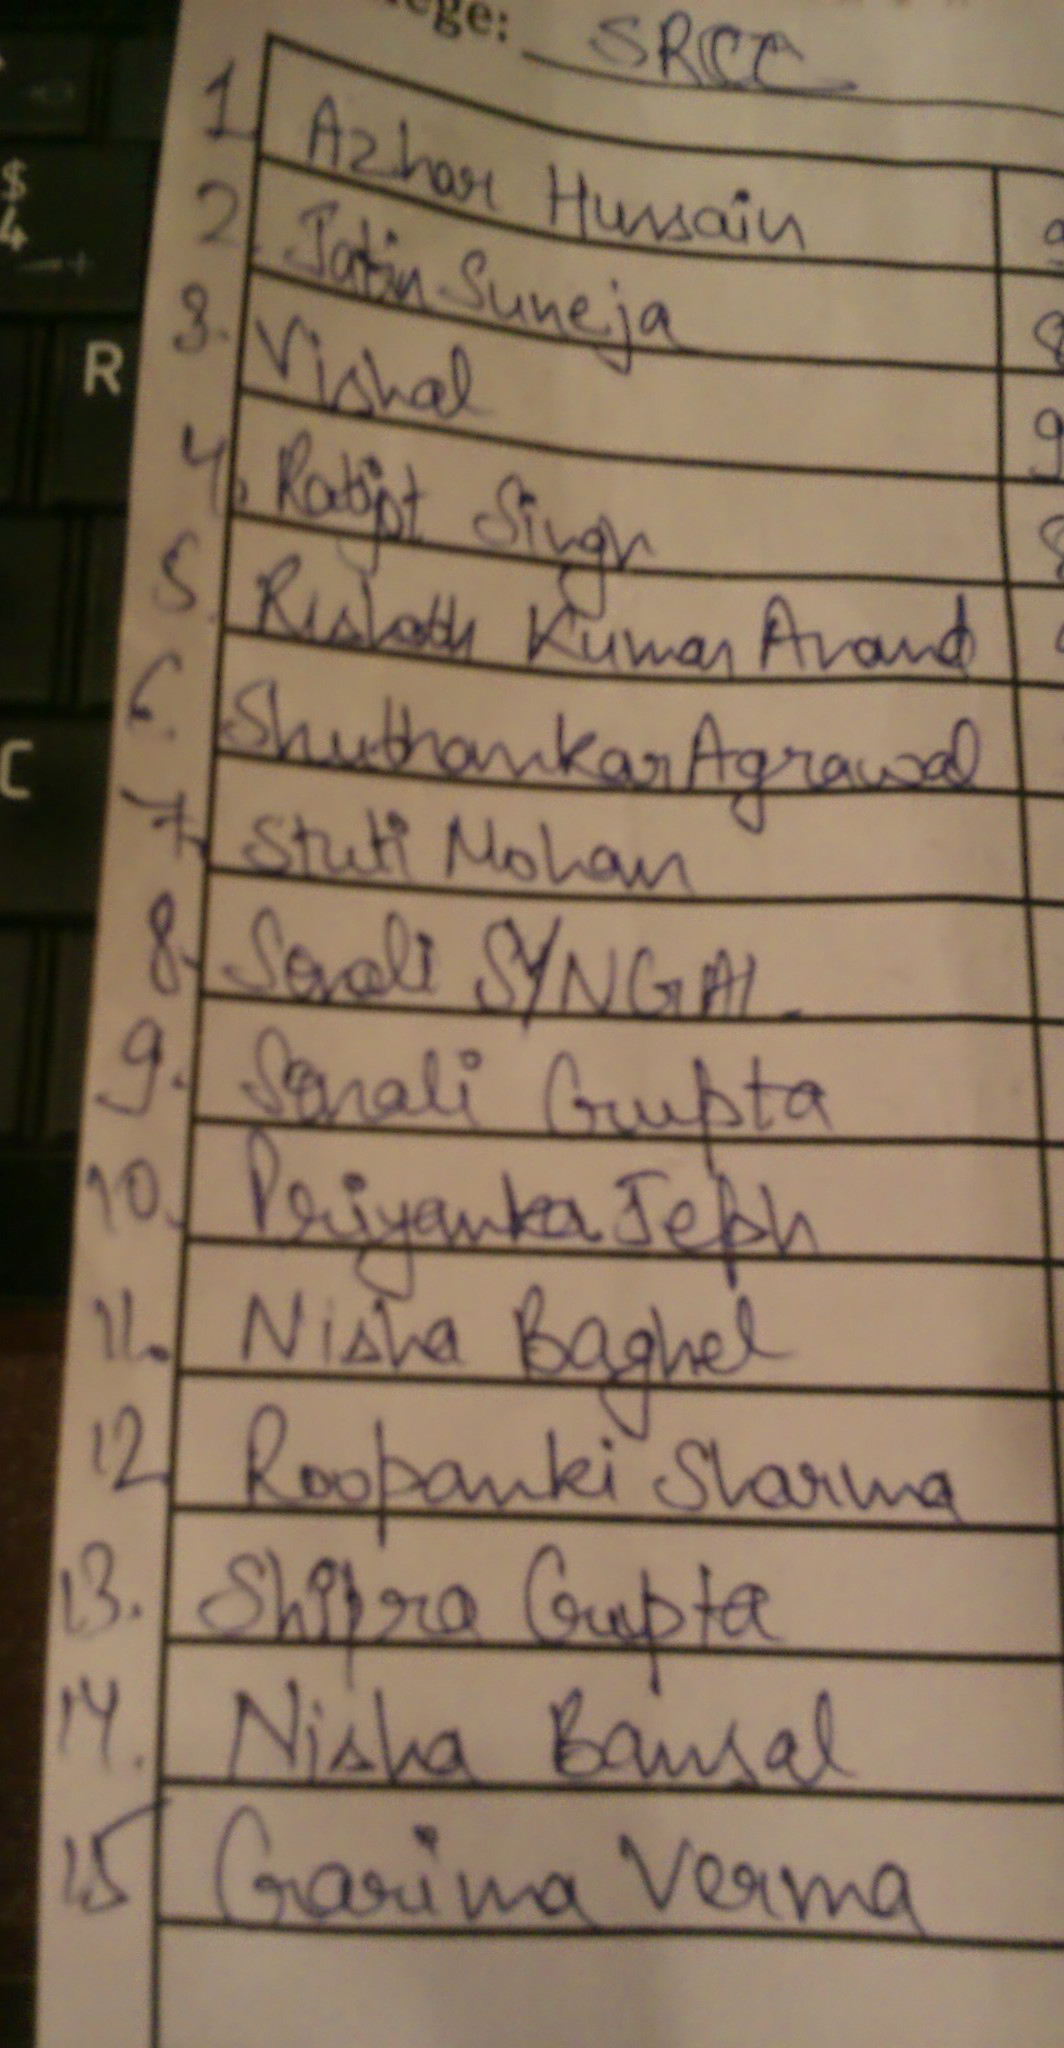 ege: SRCC
1. Azhar Hussain
2. Jatin Suneja
3. Vishal
4. Singh
5. Kumar Anand
6. Agrawal
7. Stuti Mohan
8. Sonali SYNGAL
9. Sonali Gupta
10. Priyanka Jeph
11. Nisha Baghel
12 Roopanki Sharma
13. Shipra Gupta
14. Nisha Bansal
15 Garima Verma
$
4
R
C